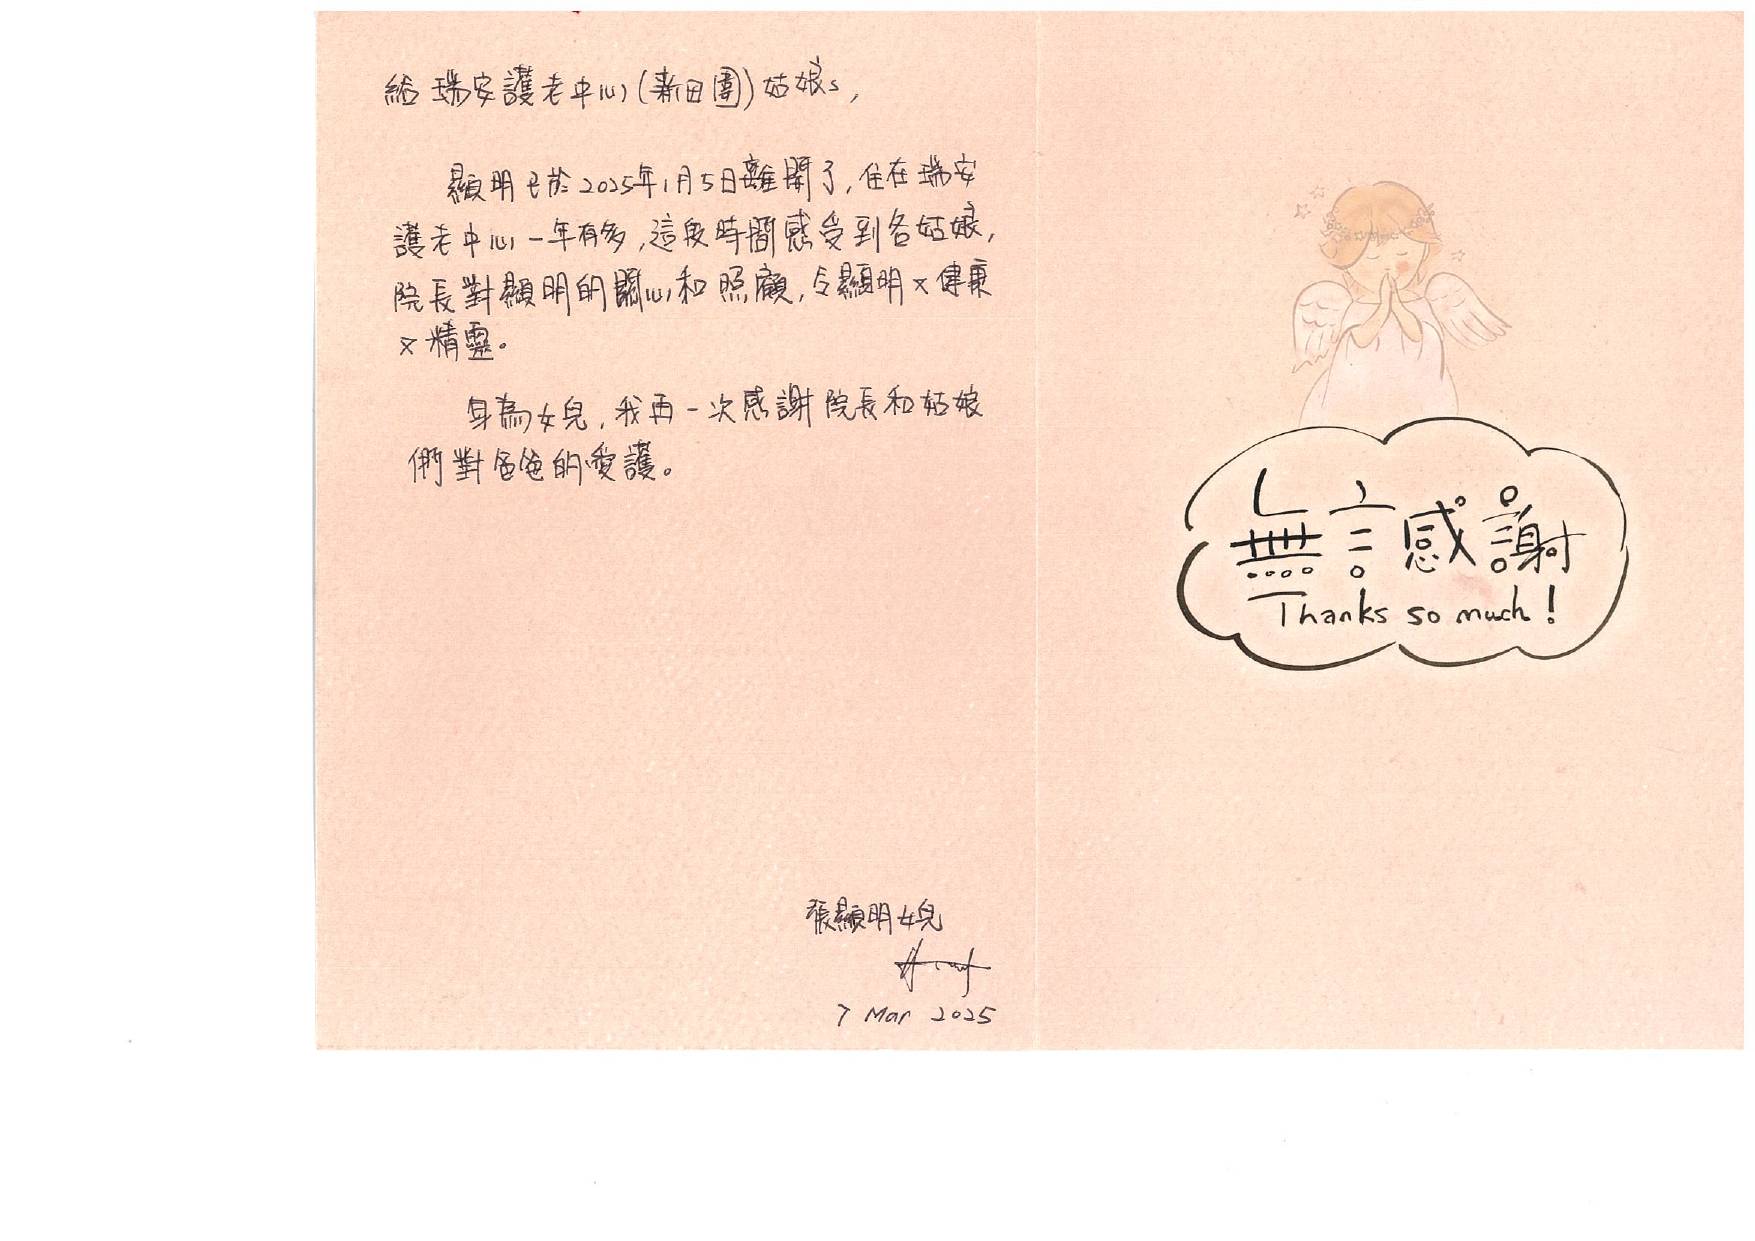 給瑞安護老中心(新田圍)姑娘s,
顯明已於2025年1月5日離開了,住在瑞安
護老中心一年有多,這段時間感受到各姑娘,
院長對顯明的關心和照顧,令顯明又健康
又精靈。
身為女兒,我再一次感謝院長和姑娘
們對爸爸的愛護。
張顯明女兒
7 Mar 2025
無言感謝
Thanks so much!